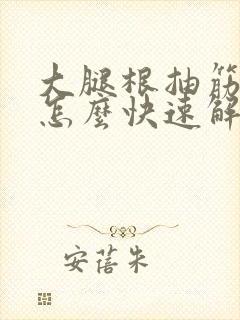 大腿根抽筋
怎麽快速解
安蓓朱